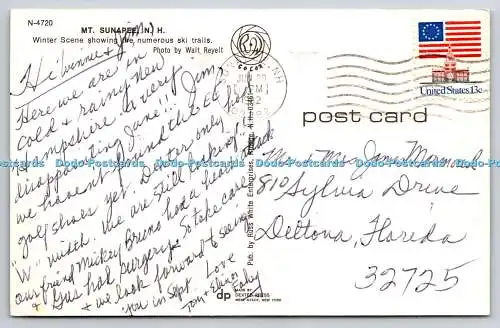 N-4720
MT. SUNAPEE, N. H.
Winter Scene showing the numerous ski trails.
Photo by Walt Reyelt
Hi &
Here we are in
cold & rainy New
Hampshire. A very
disappointing June!!! Jim,
we haven't found the EE
golf shoes yet. Dexter only
"W" width. We are still looking.
our friend Mickey Bruno had a heart attack
& Gus had surgery. So take care
& we look forward to seeing
you in Sept. Love
Tom &
JUN
PM
post card
Pub. by Bross White Enterprises
United States 13c
Mr & Mrs
810 Sylvia Drive
Deltona, Florida
32725
dp
MADE BY
DEXTER PRESS
WEST NYACK, NEW YORK
Dodo-Postcards Dodo-Postcards Dodo-Postcards Dodo-Postcards Dodo-Postcards